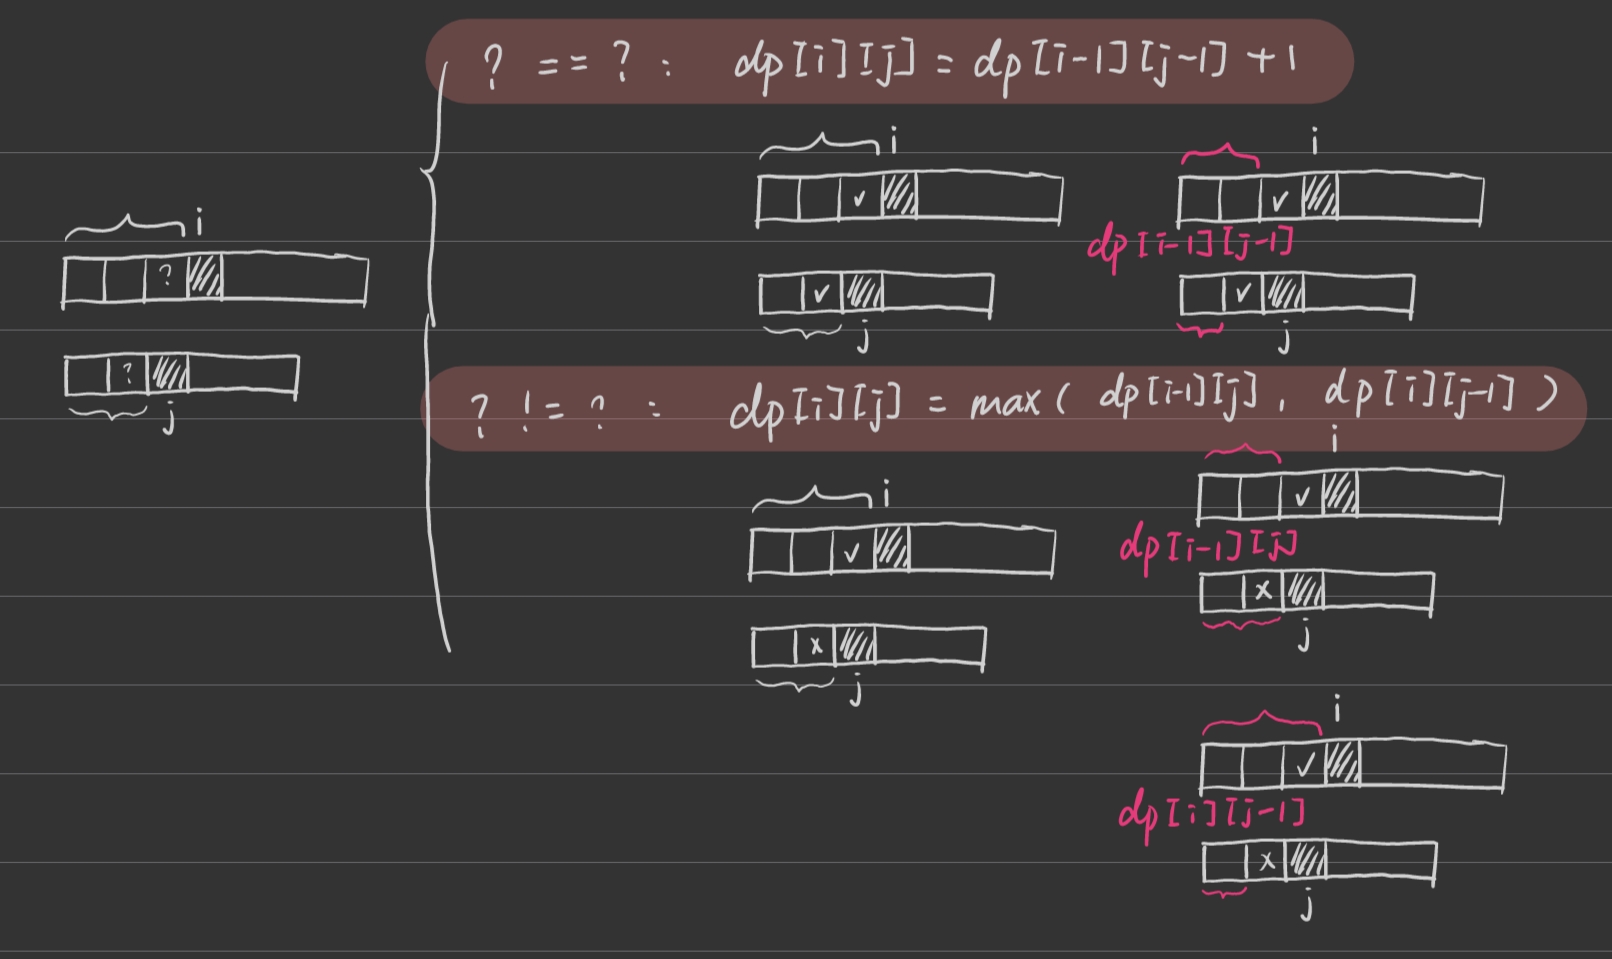 ? == ? : dp[i][j] = dp[i-1][j-1] + 1
i
✓
✓
j
i
✓
dp[i-1][j-1]
✓
j
i
?
?
j
? != ? : dp[i][j] = max( dp[i-1][j], dp[i][j-1] )
i
✓
x
j
i
✓
dp[i-1][j]
x
j
i
✓
dp[i][j-1]
x
j